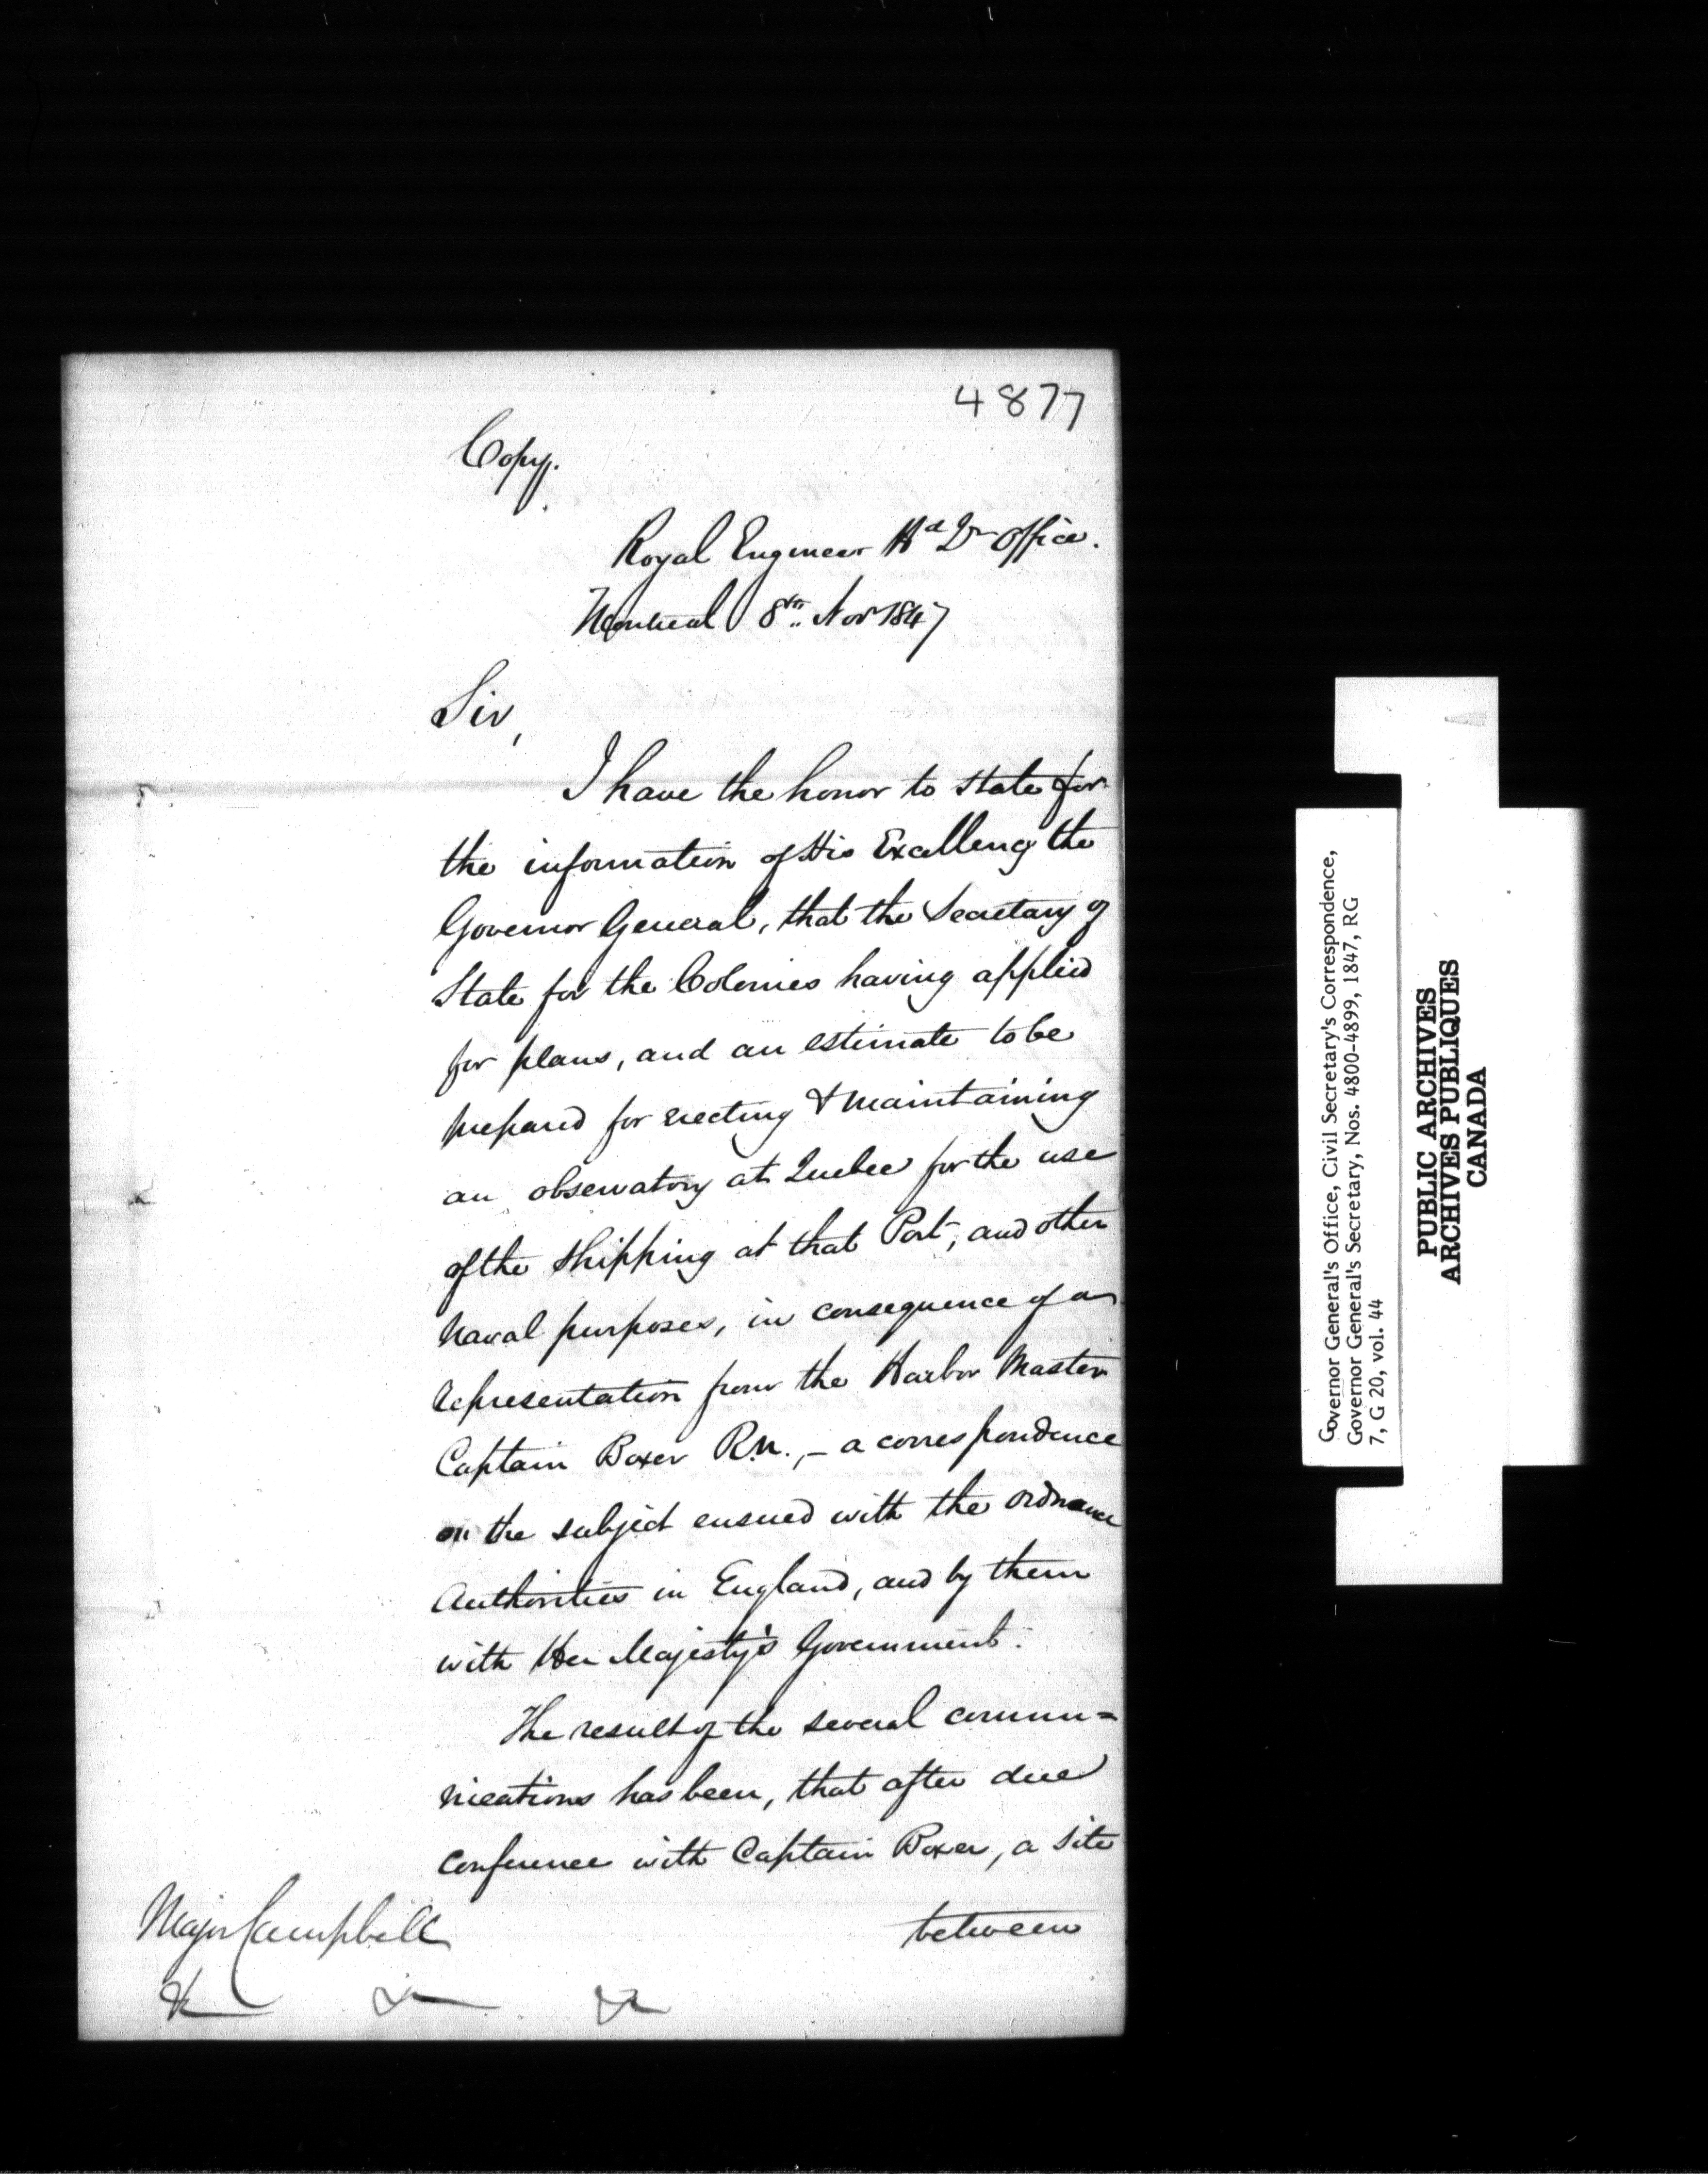 4877
Copy.
Royal Engineer Hd Qr Office.
Montreal 8th Nov 1847
Sir,
I have the honor to state for
the information of His Excellency the
Governor General, that the Secretary of
State for the Colonies having applied
for plans, and an estimate to be
prepared for erecting & maintaining
an observatory at Quebec for the use
of the shipping at that Port, and other
Naval purposes, in consequence of a
representation from the Harbor Master
Captain Boxer R.N., – a correspondence
on the subject ensued with the Ordnance
Authorities in England, and by them
with Her Majesty's Government.
The result of the several commu=
nications has been, that after due
conference with Captain Boxer, a site
between
Major Campbell
&c &c &c
Governor General's Office, Civil Secretary's Correspondence,
Governor General's Secretary, Nos. 4800-4899, 1847, RG
7, G 20, vol. 44
PUBLIC ARCHIVES
ARCHIVES PUBLIQUES
CANADA